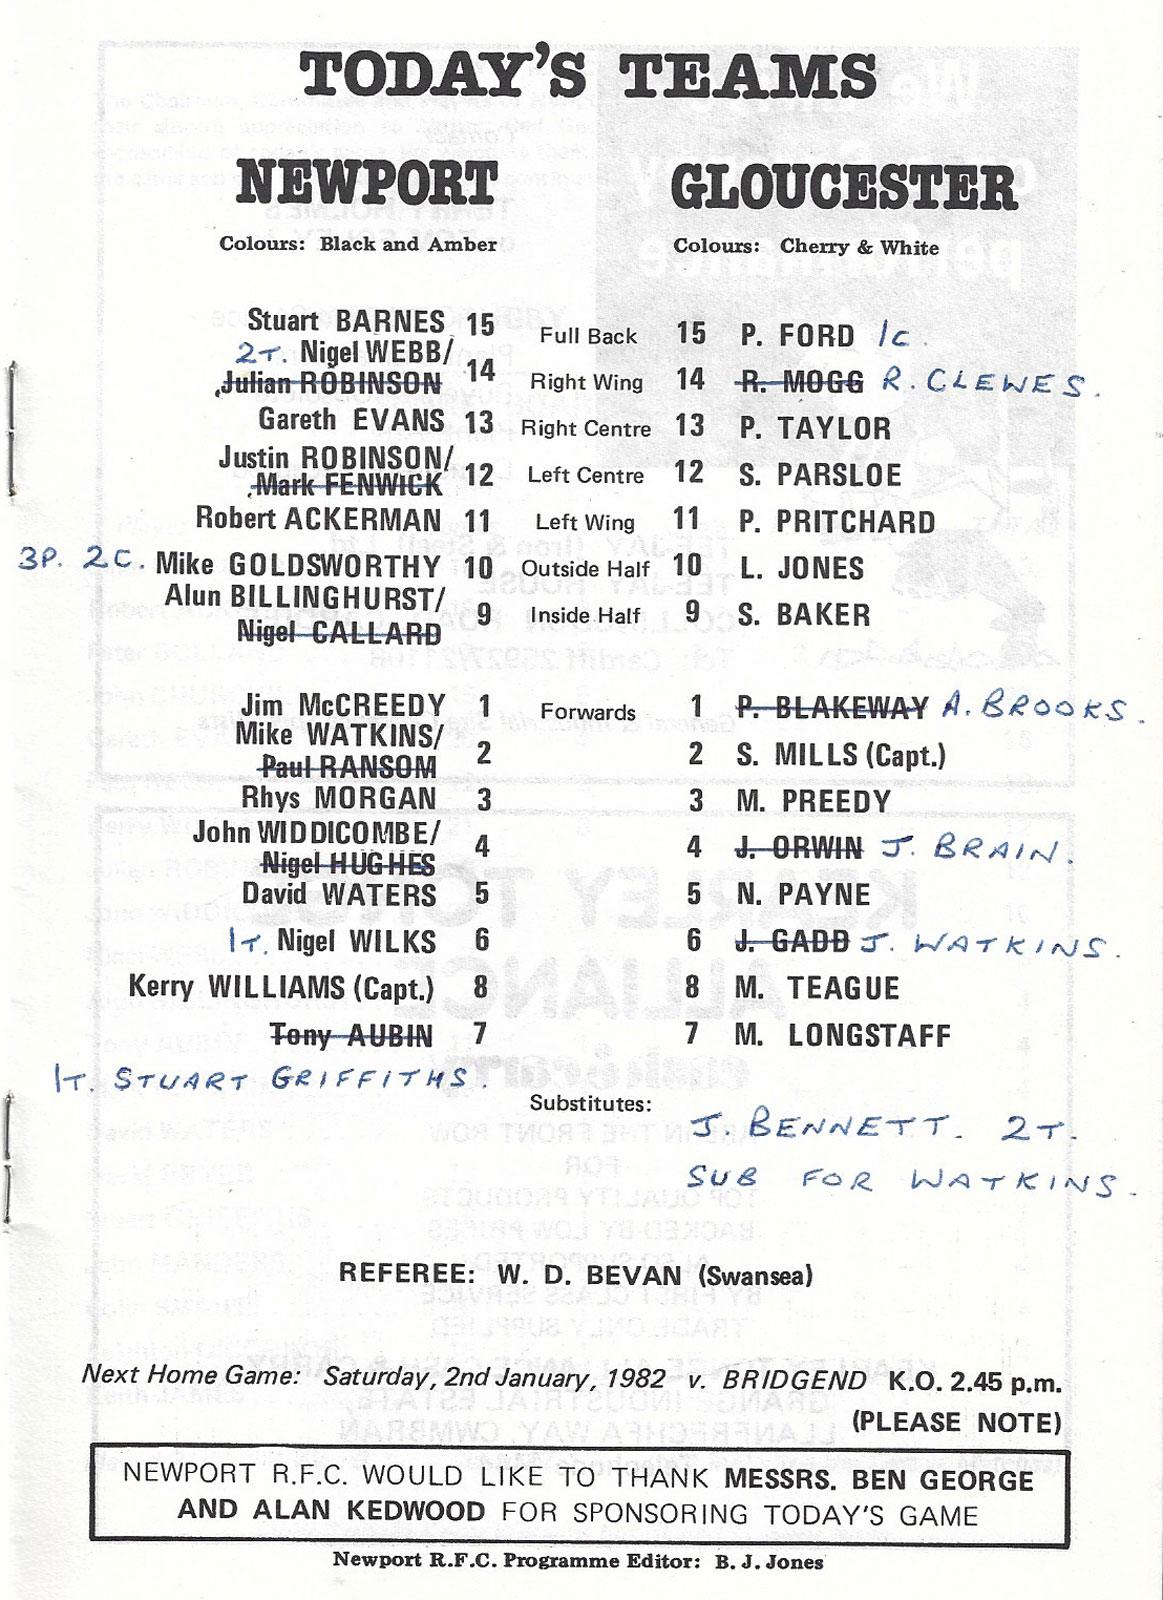 TODAY'S TEAMS
NEWPORT GLOUCESTER
Colours: Black and Amber Colours: Cherry & White
Stuart BARNES 15 Full Back 15 P. FORD 1c.
2T. Nigel WEBB/
Julian ROBINSON 14 Right Wing 14 R. MOGG R. CLEWES.
Gareth EVANS 13 Right Centre 13 P. TAYLOR
Justin ROBINSON/
Mark FENWICK 12 Left Centre 12 S. PARSLOE
Robert ACKERMAN 11 Left Wing 11 P. PRITCHARD
3P. 2C. Mike GOLDSWORTHY 10 Outside Half 10 L. JONES
Alun BILLINGHURST/
Nigel CALLARD 9 Inside Half 9 S. BAKER
Jim McCREEDY 1 Forwards 1 P. BLAKEWAY A. BROOKS.
Mike WATKINS/
Paul RANSOM 2 2 S. MILLS (Capt.)
Rhys MORGAN 3 3 M. PREEDY
John WIDDICOMBE/
Nigel HUGHES 4 4 J. ORWIN J. BRAIN.
David WATERS 5 5 N. PAYNE
1T. Nigel WILKS 6 6 J. GADD J. WATKINS.
Kerry WILLIAMS (Capt.) 8 8 M. TEAGUE
Tony AUBIN 7 7 M. LONGSTAFF
1T. STUART GRIFFITHS.
Substitutes: J BENNETT. 2T.
SUB FOR WATKINS.
REFEREE: W. D. BEVAN (Swansea)
Next Home Game: Saturday, 2nd January, 1982 v. BRIDGEND K.O. 2.45 p.m.
(PLEASE NOTE)
NEWPORT R.F.C. WOULD LIKE TO THANK MESSRS. BEN GEORGE
AND ALAN KEDWOOD FOR SPONSORING TODAY'S GAME
Newport R.F.C. Programme Editor: B. J. Jones